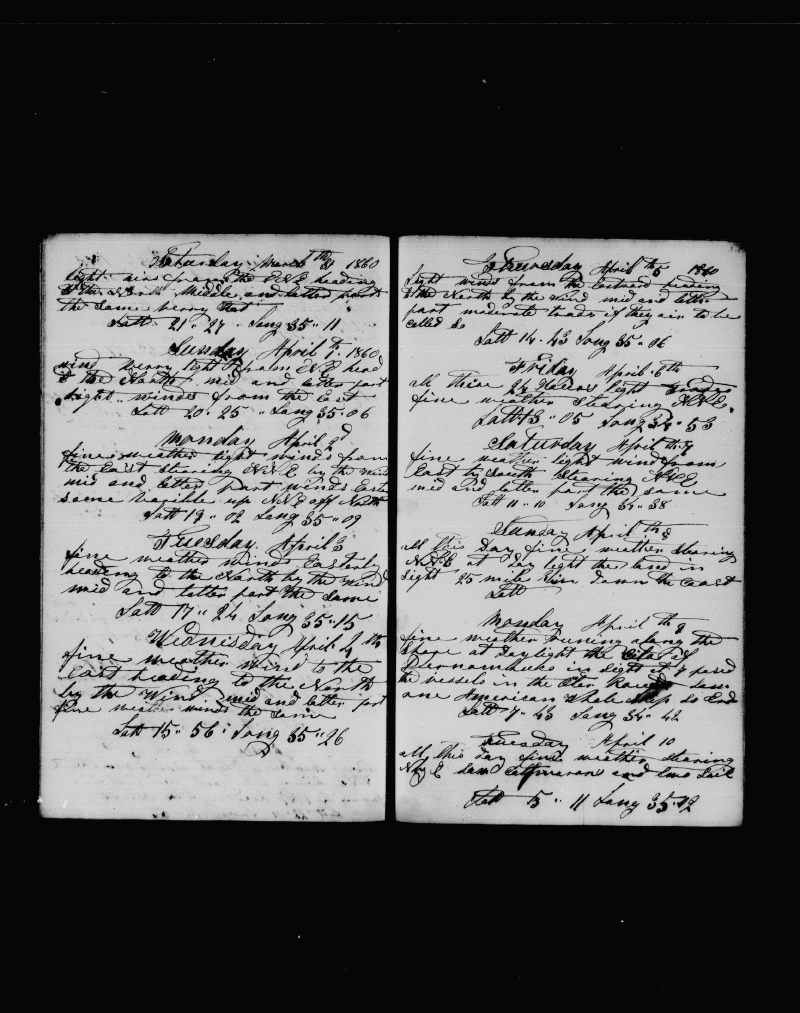 Saturday March 31th 1860
light airs from the ENE heading
to the North Middle and latter part
the same verry Hot
Latt 21 " 27 Long 35 " 11
Sunday April 1th 1860
wind verry light from ENE head
to the North mid and latter part
light winds from the East
Latt 20 " 25 " Long 35 " 06
Monday April 2d
fine weather light winds from
the East stearing NNE by the wind
mid and latter part winds East
same up NNE off North
Latt 19 " 02 Long 35 " 09
Tuesday April 3
fine weather winds Easterly
heading to the North by the wind
mid and latter part the same
Latt 17 " 24 Long 35 " 15
Wednisday April 4th
fine weather wind to the
East heading to the North
by the wind mid and latter part
fine weather winds the same
Latt 15 " 56 Long 35 " 26
Thursday April 5th 1860
light wind from the Eastward heading
to the North by the wind mid and latter
part moderate trades if they air to be
called so
Latt 14 " 43 Long 35 " 06
Friday April 6th
all these 24 Hours light winds
fine weather stearing NNE
Latt 13 " 05 Long 34 " 53
Saturday April 7th
fine weather light wind from
East by South stearing NNE
mid and latter part the same
Latt 11 " 10 Long 34 " 38
Sunday April 8th
all this Day fine weather stearing
NNE at Day light the land in
sight 25 mile down the Coast
Latt
Monday April 9th
fine weather runing along the
shore at Daylight the City of
Pernambuko in sight at 7 pased
the vessels in the Roads saw
one American Whale ship
Latt 7 " 43 Long 34 " 42
Tuesday April 10
all this day fine weather stearing
N by E saw Cattmaran and two Sail
Latt 5 " 11 Long 35 " 12